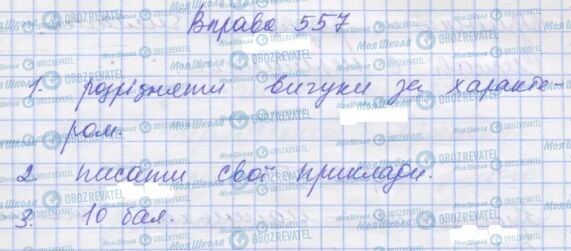 Вправа 557
1. розрізняти вигуки за характе-
ром.
2 писати свої приклади.
3. 10 бал.